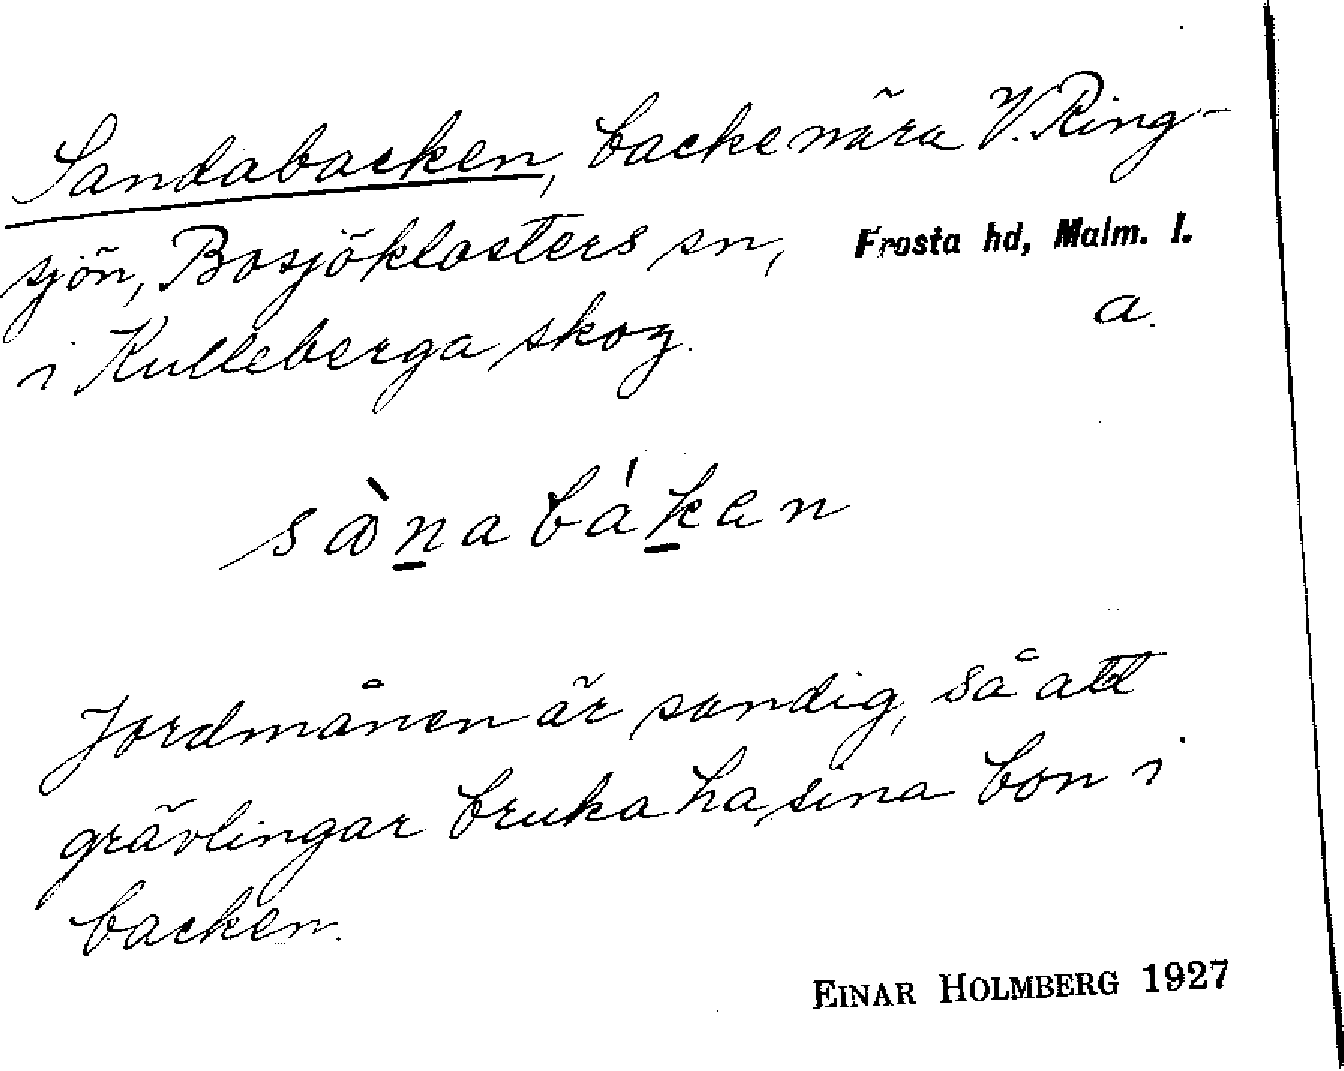 Sandabacken, backe nära V. Ring-
sjön, Bosjöklosters sn, Frosta hd, Malm. l.
i Kulleberga skog. a.
sànabákan
Jordmånen är sandig, så att
grävlingar bruka ha sina bon i
backen.
EINAR HOLMBERG 1927